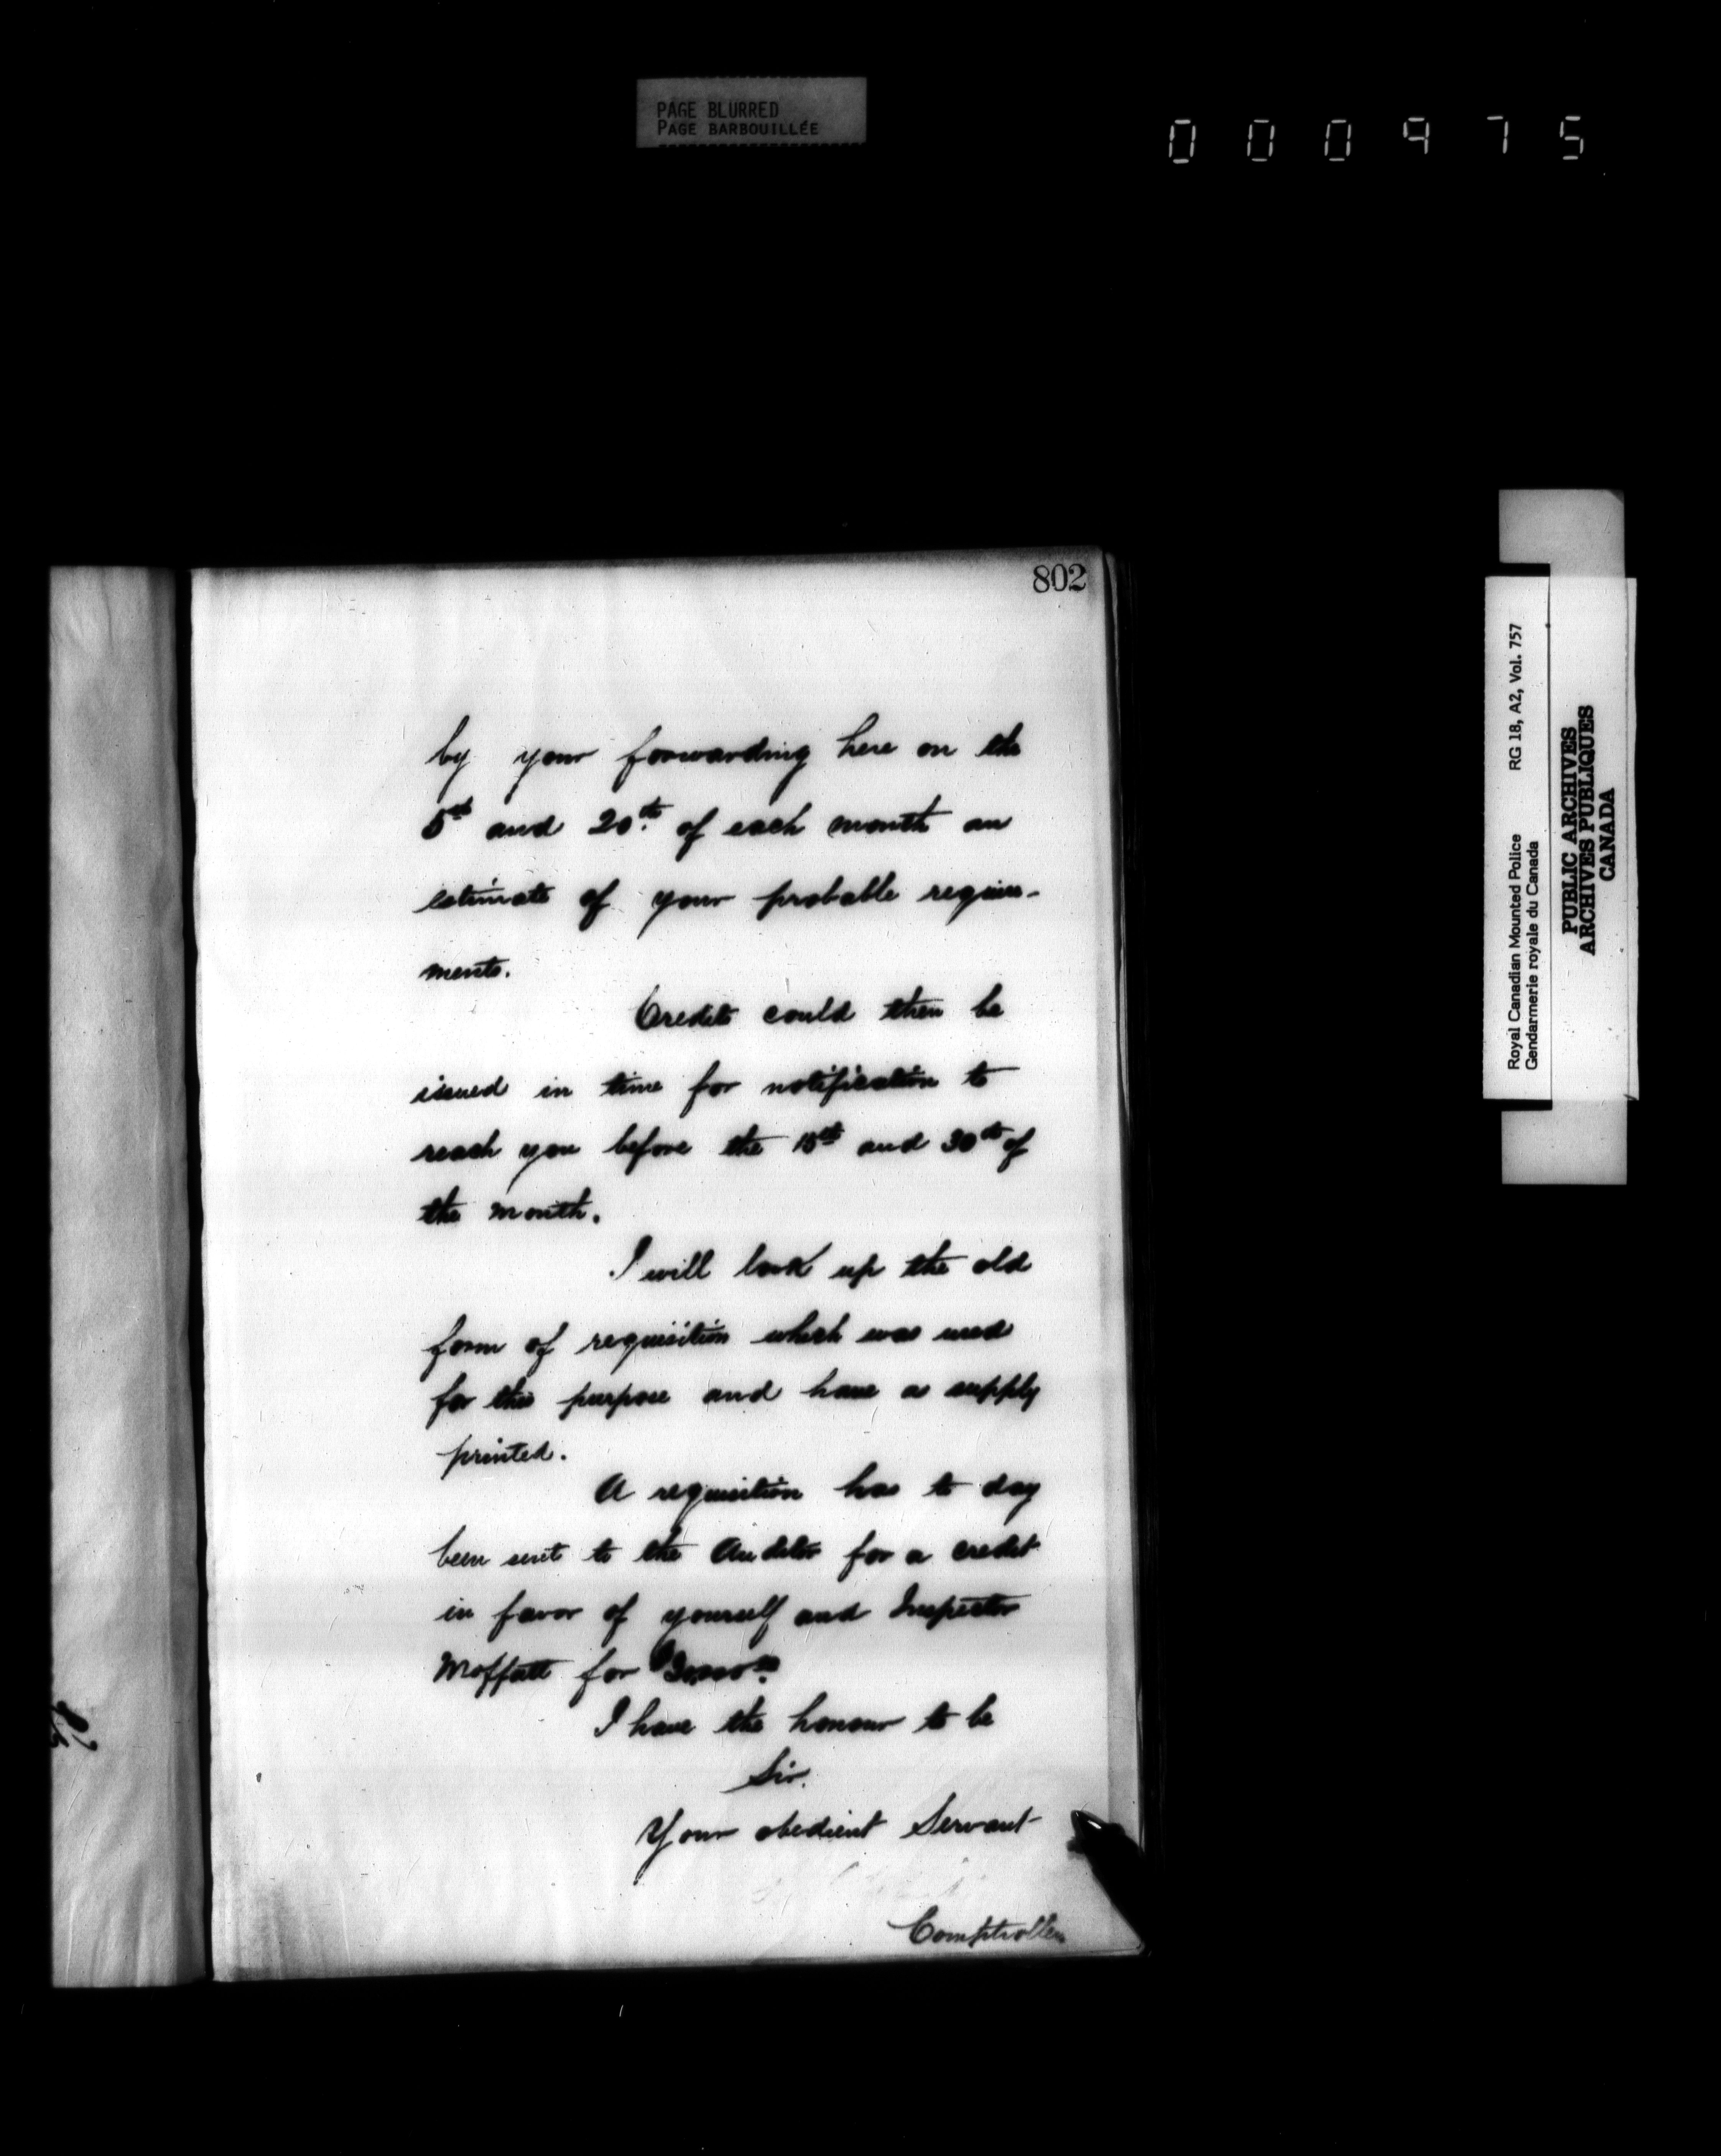 PAGE BLURRED
PAGE BARBOUILLÉE
000975
802
by your forwarding here on the
5th and 20th of each month an
estimate of your probable require-
ments.
Credits could then be
issued in time for notification to
reach you before the 15th and 30th of
the month.
I will look up the old
form of requisition which was used
for this purpose and have a supply
printed.
A requisition has to day
been sent to the Auditor for a credit
in favor of yourself and Inspector
Moffatt for
I have the honour to be
Sir.
Your obedient Servant
Comptroller
Royal Canadian Mounted Police RG 18, A2, Vol. 757
Gendarmerie royale du Canada
PUBLIC ARCHIVES
ARCHIVES PUBLIQUES
CANADA